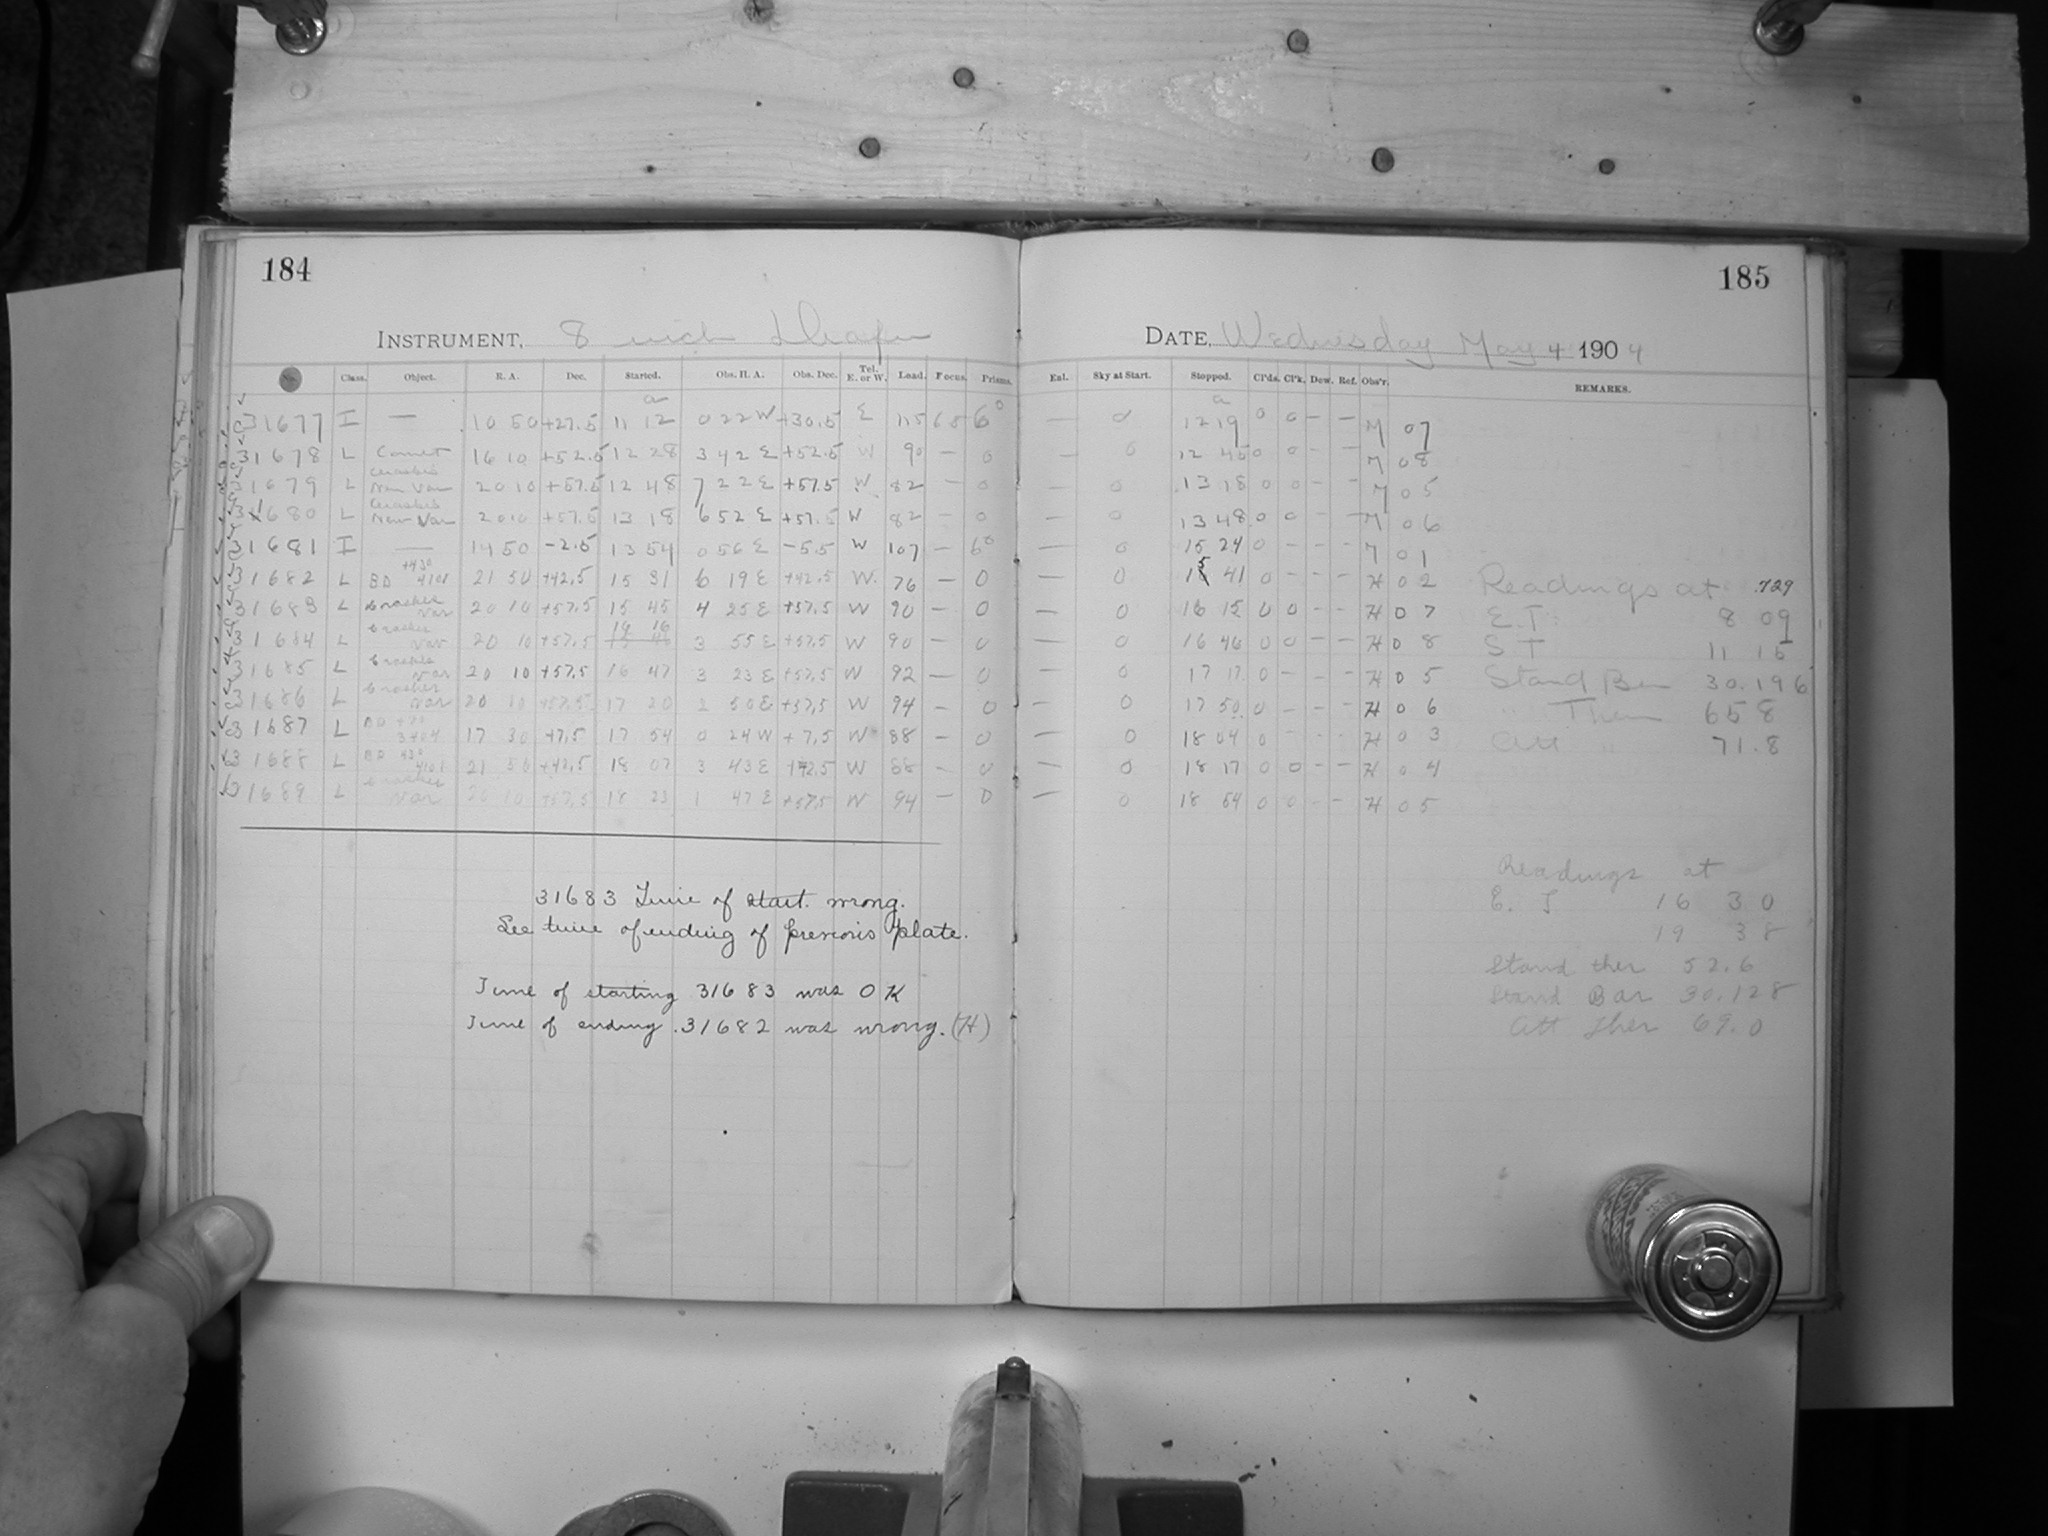 184
185
INSTRUMENT, 8 inch Draper
DATE, Wednesday May 4 1904
No. Class. Object. R. A. Dec. Started. Obs. H. A. Obs. Dec. Tel. E. or W. Load. Focus. Prisms. Eal. Sky at Start. Stopped. Cl'ds. Cl'k. Dew. Ref. Obs'r. REMARKS.
31677 I — 10 50 +27.5 11 12 0 22 W +30.5 E 115 6° — 0 12 19 0 0 – – M 07
31678 L Comet 16 10 +52.5 12 28 3 42 E +52.5 W 90 – 0 — 0 12 45 0 0 – – M 08
31679 L Ceraskis New Var 20 10 +57.5 12 48 7 22 E +57.5 W 82 – 0 — 0 13 18 0 0 – – M 05
31680 L Ceraskis New Var 20 10 +57.5 13 18 6 52 E +57.5 W 82 – 0 — 0 13 48 0 0 – – M 06
31681 I — 14 50 -2.5 13 54 0 56 E -5.5 W 107 – 6° — 0 15 24 0 – – – M 01
31682 L BD +43° 4101 21 50 +42.5 15 31 6 19 E +42.5 W. 76 – 0 — 0 15 41 0 – – – H 02
31683 L Var 20 10 +57.5 15 45 4 25 E +57.5 W 90 – 0 0 16 15 0 0 – – H 07
31684 L Var 20 10 +57.5 16 16 3 55 E +57.5 W 90 – 0 0 16 46 0 0 – – H 08
31685 L Var 20 10 +57.5 16 47 3 23 E +57.5 W 92 — 0 0 17 17 0 – – – H 05
31686 L Var 20 10 +57.5 17 20 2 50 E +57.5 W 94 – 0 — 0 17 50 0 – – – H 06
31687 L BD +7° 17 30 +7.5 17 54 0 24 W +7.5 W 88 – 0 — 0 18 04 0 – – – H 03
31688 L BD 43° 4101 21 50 +42.5 18 07 3 43 E +42.5 W 88 – 0 — 0 18 17 0 0 – – H 04
31689 L Var 20 10 +57.5 18 23 1 47 E +57.5 W 94 – 0 — 0 18 54 0 0 – – H 05
Readings at 729
E.T. 8 09
S T 11 15
Stand Bar 30.196
" Ther 65 8
Att " 71.8
31683 Time of start. wrong.
See time of ending of previous plate.
Time of starting 31683 was OK
Time of ending 31682 was wrong. (H)
Readings at
E. T 16 30
19 38
Stand ther 52.6
Stand Bar 30.128
Att Ther 69.0